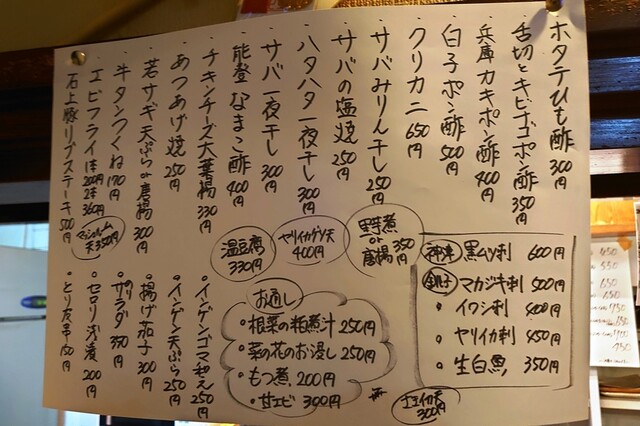 ホタテひも酢 300円
舌切とキビナゴポン酢 350円
兵庫カキポン酢 400円
白子ポン酢 500円
クリカニ 650円
サバみりん干し 250円
サバの塩焼 250円
ハタハタ一夜干し 300円
サバ一夜干し 300円
能登なまこ酢 400円
チキンチーズ大葉揚 330円
あつあげ焼 250円
若サギ天ぷらor唐揚 300円
牛タンつくね 170円
エビフライ 1本200円 2本360円
石上豚リブステーキ 500円
マッシュルーム天 350円
温豆腐 330円
ヤリイカゲソ天 400円
里芋煮or唐揚 350円
神津 黒ムツ刺 600円
銚子 マカジキ刺 500円
・イワシ刺 400円
・ヤリイカ刺 450円
・生白魚 350円
お通し
・根菜の粕煮汁 250円
・菜の花のお浸し 250円
・もつ煮 200円
・甘エビ 300円
300円
・インゲンゴマ和え 250円
・インゲン天ぷら 250円
・揚げ茄子 300円
・サラダ 350円
・セロリ浅漬 200円
・とり皮串 150円